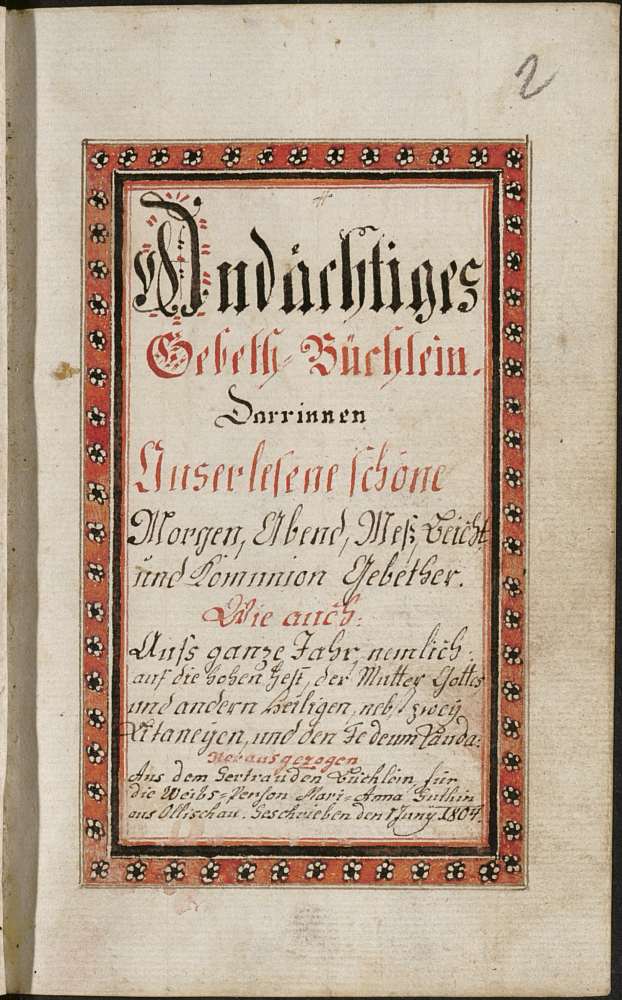 2
Andächtiges
Gebeth-Büchlein.
Darrinnen
Auserlesene schöne
Morgen, Abend, Meß, Beicht
und Kommnion Gebether.
Wie auch:
Aufs ganze Jahr, nemlich:
auf die hohen Fest, der Mutter Gottes
und andern Heiligen, nebst zwey
Litaneyen, und den Te deum Lauda:
Herausgezogen
Aus dem Gertrauden Büchlein für
die Weibs-Person Mari-Anna Guthin
aus Ollischau. Geschrieben den 1 Juny 1804.